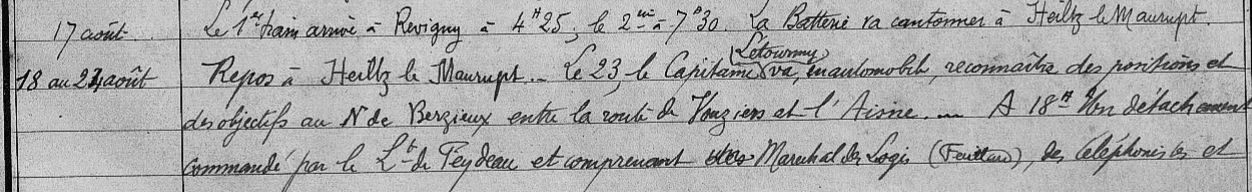 17 août. Le 1er train arrive à Revigny à 4H25, le 2me à 7H30. La Batterie va cantonner à Heiltz le Maurupt.
Létourmy
18 au 24 août Repos à Heiltz le Maurupt. _ Le 23, le Capitaine va, en automobile, reconnaître des positions et
des objectifs au N de Berzieux entre la route de Vouziers et l'Aisne. _ A 18H Un détachement
commandé par le Lt de Feydeau et comprenant Marechal des Logis (Feuillard), des téléphonistes et